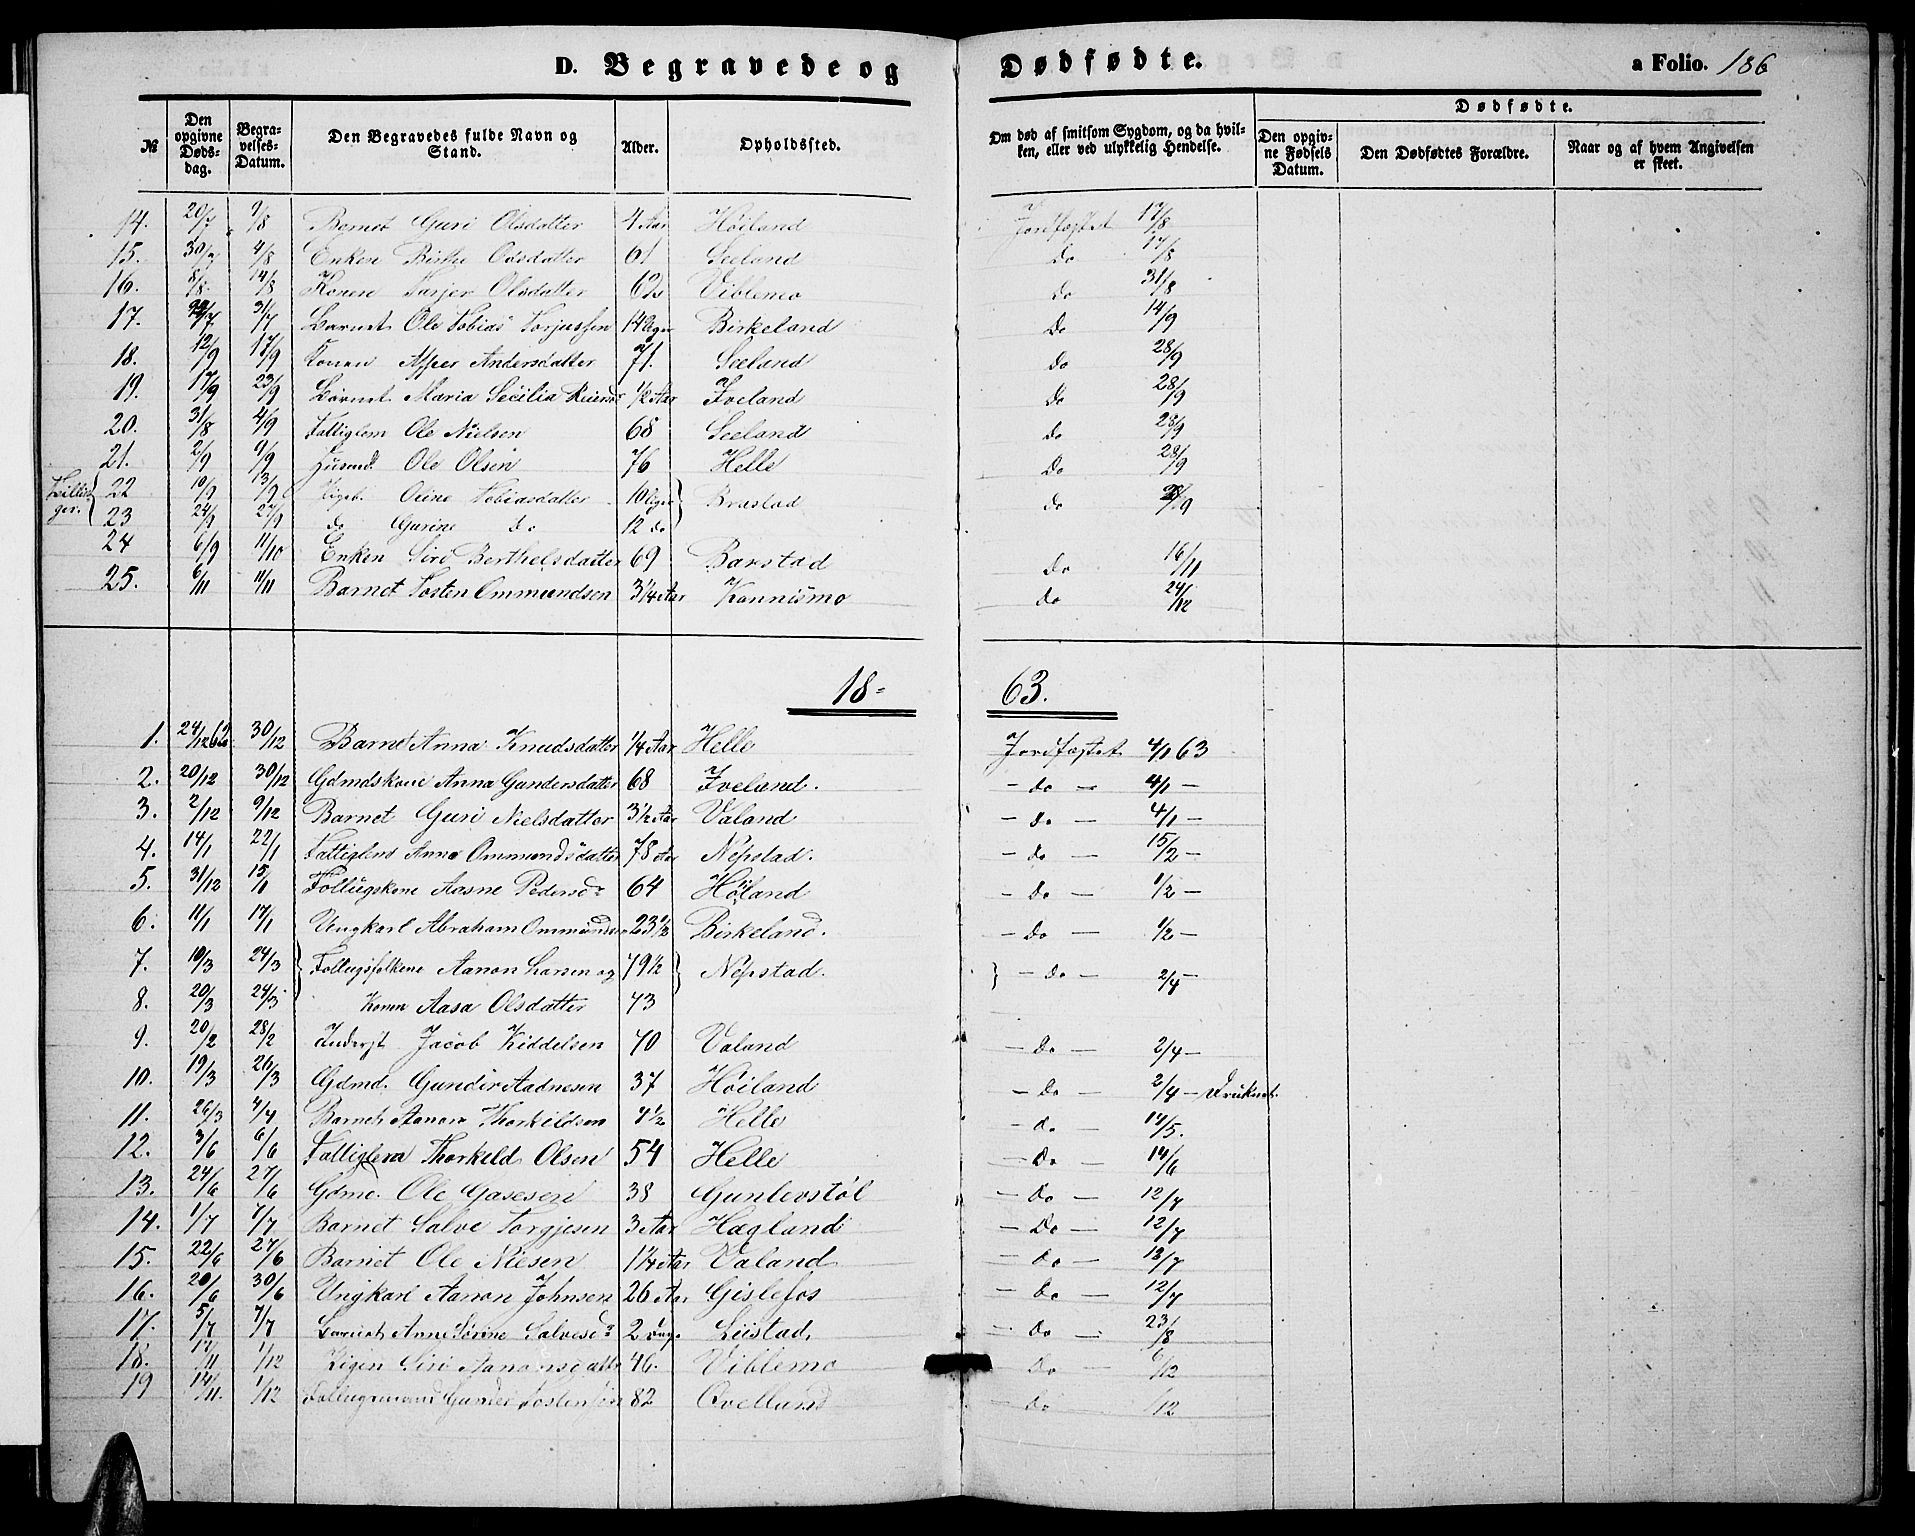 D. Begravede og Dødfødte. a Folio. 186
№ Den opgivne Døds-dag. Begra-velses-Datum. Den Begravedes fulde Navn og Stand. Alder. Opholdssted. Om død af smitsom Sygdom, og da hvil-ken, eller ved ulykkelig Hendelse. Dødfødte. Den opgiv-ne Fødsels Datum. Den Dødfødtes Forældre. Naar og af hvem Angivelsen er skeet.
14. 20/7 9/8 Barnet Guri Olsdatter 4 Aar Höiland Jordfæstet 17/8
15. 30/7 4/8 Enken Birthe Odsdatter 61 Seeland do 17/8
16. 8/8 14/8 Konen Tarjer Olsdatter 62 Viblemo do 31/8
17. 31/7 Barnet Ole Tobias Torjussen 14 Uger Birkeland do 14/9
18. 12/9 17/9 Konen Asper Andersdatter 71. Seeland do 28/9
19. 17/9 23/9 Barnet Maria Secilia 1/2 Aar Iveland do 28/9
20. 31/8 4/9 Fattiglem Ole Nielsen 68 Seeland do 28/9
21. 2/9 9/9 Husmd. Ole Olsen 76 Helle do 28/9
Tvillin-ger. 22 10/9 13/9 Pigeb. Oline Tobiasdatter 10 Uger Brastad do 28/9
23 24/9 27/9 do Gurine do 12 do
24 6/9 11/10 Enken Siri Berthelsdatter 69 Barstad do 16/11
25. 6/11 11/11 Barnet Tosten Ommundsen 3 1/4 Aar Konnismo do 24/12
18= 63.
1. 24/12 62 30/12 Barnet Anna Knudsdatter 1/4 Aar Helle Jordfæstet 4/1 63
2. 20/12 30/12 Gdmdskone Anna Gundersdatter 68 Iveland. - do - 4/1 -
3. 2/12 9/12 Barnet Guri Nielsdatter 3 1/2 Aar Valand - do - 4/1 -
4. 14/1 22/1 Fattiglem Anna Ommundsdatter 78 Aar Nepstad. - do - 15/2 -
5. 31/12 15/1 Follugskone Aasne Pedersd. 64 Höland - Do - 1/2 -
6. 11/1 17/1 Ungkarl Abraham Ommundsen 23 1/2 Birkeland. - Do - 1/2 -
7. 10/3 24/3 Follugsfolkene Aanon Larsen og 79 1/2 Nepstad. - do - 2/4 -
8. 20/3 24/3 Konen Aasa Olsdatter 73
9. 20/2 28/2 Inderst Jacob Kiddelsen 70 Valand - Do - 2/4 -
10. 19/3 26/3 Gdmd. Gunder Aadnesen 37 Höiland - Do - 2/4 - Druknet.
11. 26/3 4/4 Barnet Aanon Thorkildsen 4 1/2 Helle - do. - 14/5.
12. 3/6 6/6 Fattiglem Thorkeld Olsen 54 Helle - Do - 14/6
13. 24/6 27/6 Gdmd. Ole Gasesen 38 Gunlevstöl - Do - 12/7
14. 1/7 7/7 Barnet Salve Torgjesen 3 Aar Hagland - Do - 12/7
15. 22/6 27/6 Barnet Ole Nielsen 1 1/4 Aar Valand - Do - 12/7
16. 20/6 30/6 Ungkarl Aanon Johnsen 26 Aar Gislefos - Do - 12/7
17. 5/7 7/7 Barnet Anne Serine Salvesd. 2 Dage Leistad, - Do - 23/8
18. 17/11 1/12 Pigen Siri Aanonsdatter 46. Viblemo Do - 6/12
19 14/11. 1/12 Follugsmand Gunder Tostensen 82 Qvelland - do - /12